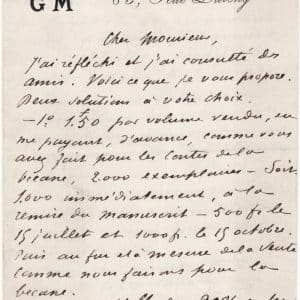 GM
Cher Monsieur,
J'ai réfléchi et j'ai consulté des
amis. Voici ce que je vous propose.
Deux solutions à votre choix.
– 1º 1f.50 par volume vendu, en
me payant, d'avance, comme vous
avez fait pour les Contes de la
bécane. 2.000 exemplaires – Soit
1.000 immédiatement, à la
remise du manuscrit – 500 fs le
15 juillet et 1000 f. le 15 octobre.
Puis au fur et à mesure de la vente
comme nous faisons pour la
bécane.